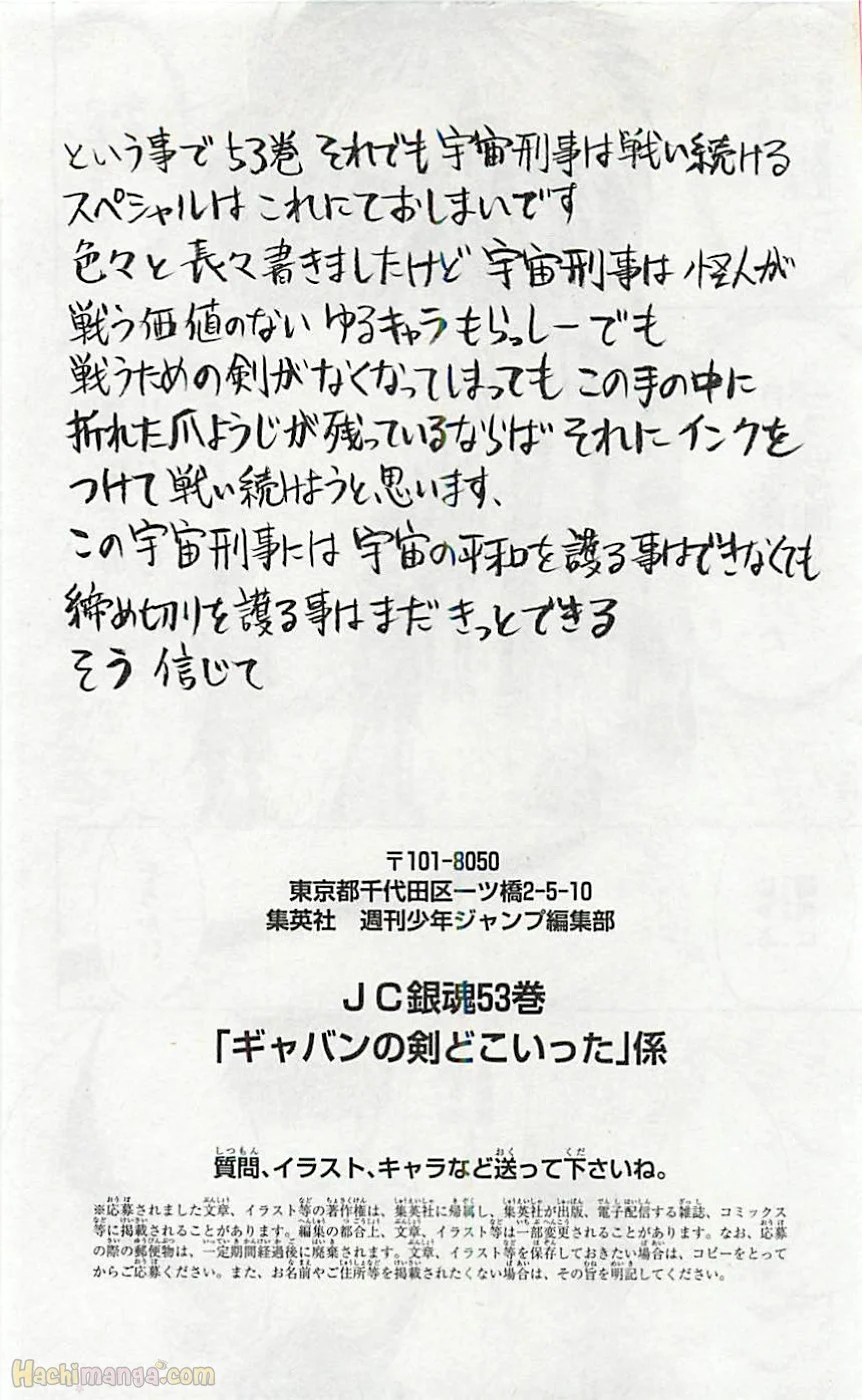 という事で53巻 それでも宇宙刑事は戦い続ける
スペシャルは これにておしまいです
色々と 長々書きましたけど 宇宙刑事は 怪人が
戦う価値のない ゆるキャラもらっしーでも
戦うための剣がなくなってしまっても この手の中に
折れた爪ようじが残っているならば それにインクを
つけて戦い続けようと、思います、
この宇宙刑事には 宇宙の平和を護る事はできなくても
締め切りを護る事はまだきっとできる
そう 信じて
〒101-8050
東京都千代田区一ツ橋2-5-10
集英社 週刊少年ジャンプ編集部
JC銀魂53巻
「ギャバンの剣どこいった」係
質問、イラスト、キャラなど送って下さいね。
※応募されました文章、イラスト等の著作権は、集英社に帰属し、集英社が出版、電子配信する雑誌、コミックス
等に掲載されることがあります。編集の都合上、文章、イラスト等は一部変更されることがあります。なお、応募
の際の郵便物は、一定期間経過後に廃棄されます。文章、イラスト等を保存しておきたい場合は、コピーをとって
からご応募ください。また、お名前やご住所等を掲載されたくない場合は、その旨を明記してください。
Hachimanga.com